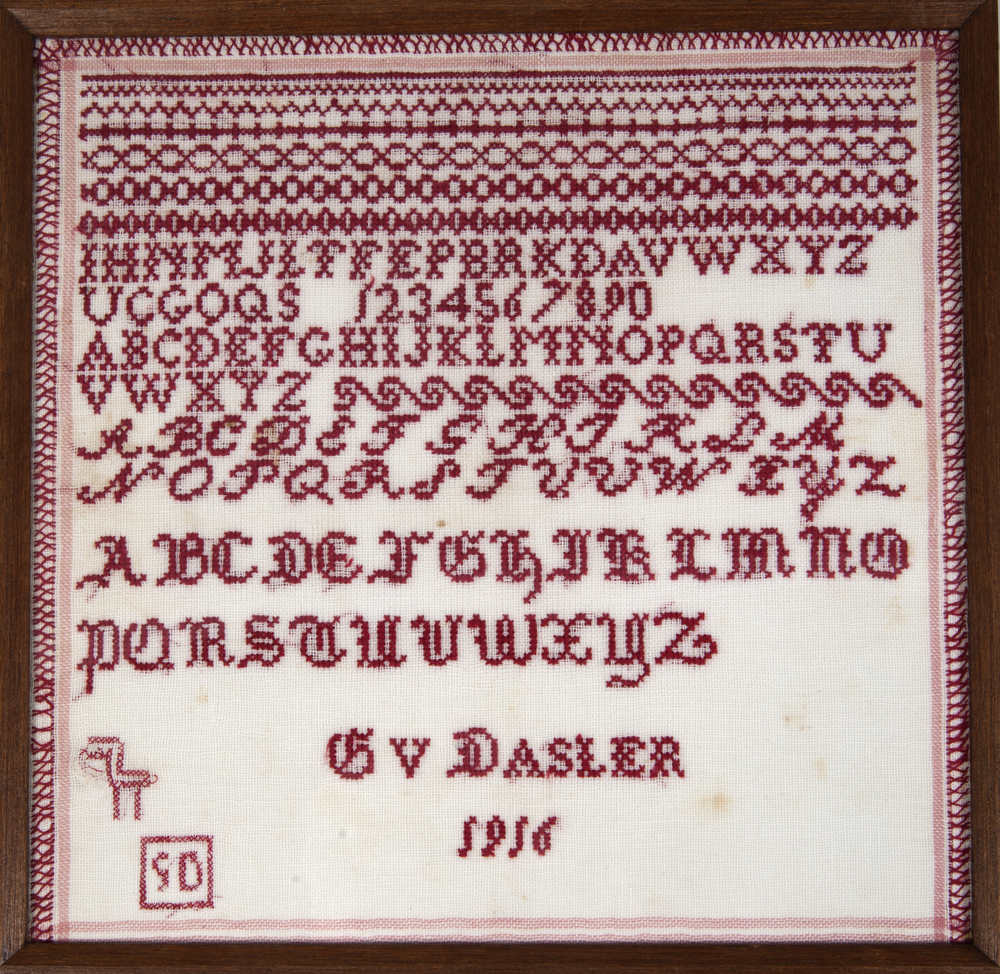 IHNMJLTFEPBRKDAVWXYZ
UCGOQS 1234567890
ABCDEFGHIJKLMNOPQRSTU
VWXYZ
ABCDEFGHJKLM
NOPQRSTUVWXYZ
ABCDEFGHIKLMNO
PQRSTUVWXYZ
G V DASLER
1916